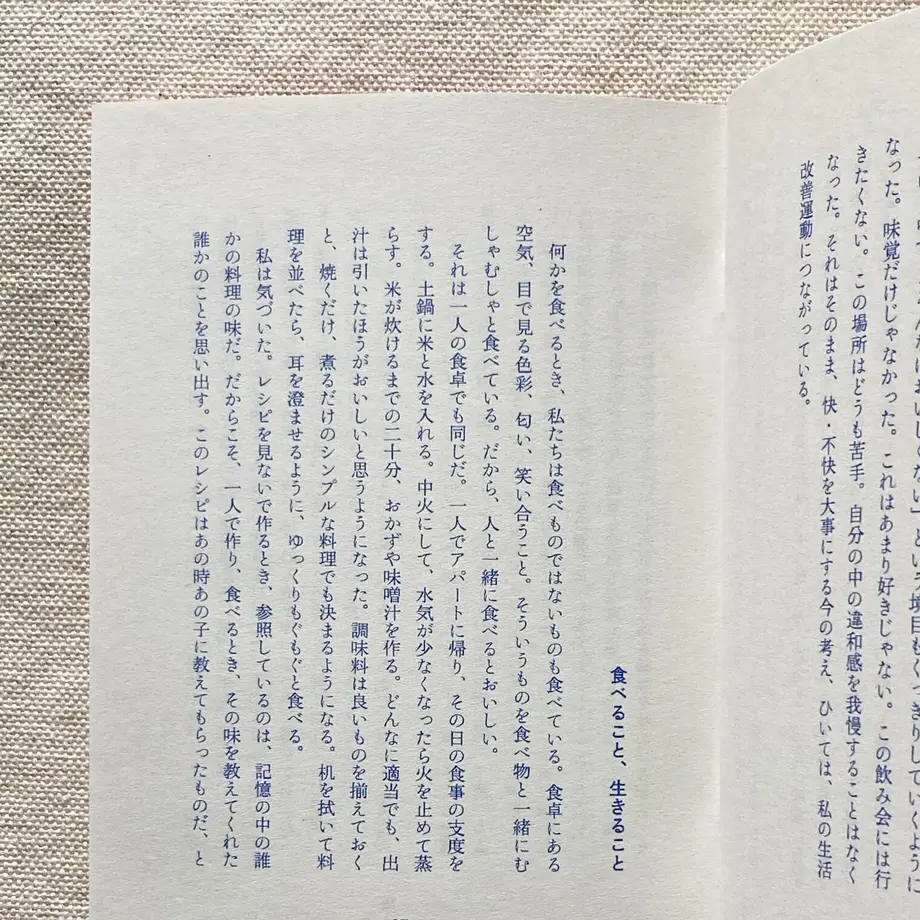 なった。味覚だけじゃなかった。これはあまり好きじゃない。この飲み会には行
きたくない。この場所はどうも苦手。自分の中の違和感を我慢することはなく
なった。それはそのまま、快・不快を大事にする今の考え、ひいては、私の生活
改善運動につながっている。
食べること、生きること
何かを食べるとき、私たちは食べものではないものも食べている。食卓にある
空気、目で見る色彩、匂い、笑い合うこと。そういうものを食べ物と一緒にむ
しゃむしゃと食べている。だから、人と一緒に食べるとおいしい。
それは一人の食卓でも同じだ。一人でアパートに帰り、その日の食事の支度を
する。土鍋に米と水を入れる。中火にして、水気が少なくなったら火を止めて蒸
らす。米が炊けるまでの二十分、おかずや味噌汁を作る。どんなに適当でも、出
汁は引いたほうがおいしいと思うようになった。調味料は良いものを揃えておく
と、焼くだけ、煮るだけのシンプルな料理でも決まるようになる。机を拭いて料
理を並べたら、耳を澄ませるように、ゆっくりもぐもぐと食べる。
私は気づいた。レシピを見ないで作るとき、参照しているのは、記憶の中の誰
かの料理の味だ。だからこそ、一人で作り、食べるとき、その味を教えてくれた
誰かのことを思い出す。このレシピはあの時あの子に教えてもらったものだ、と